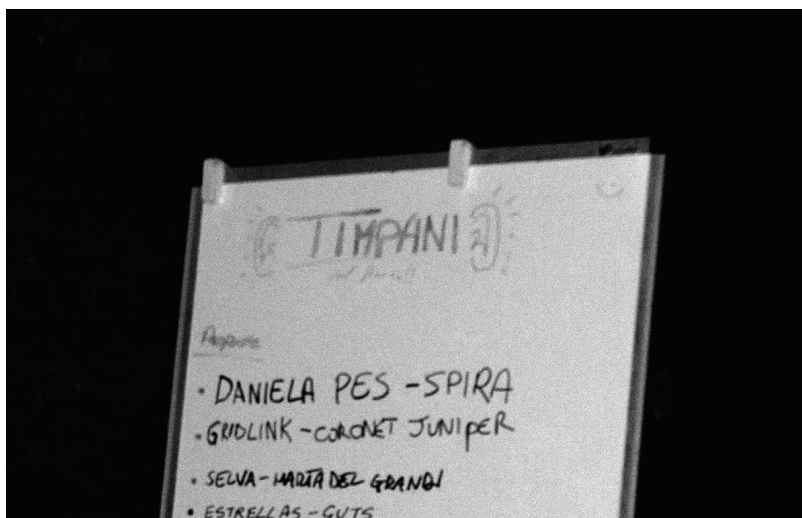 TIMPANI
• DANIELA PES - SPIRA
• GRIDLINK - CORONET JUNIPER
• SELVA - MARTA DEL GRANDI
• ESTRELLAS - GUTS